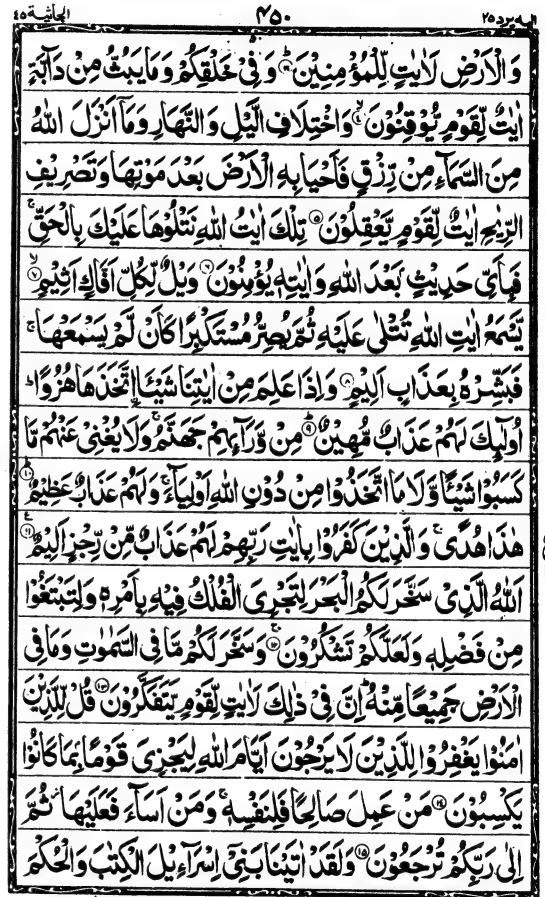 اليه يرد ٢٥ ٤٥٠ الجاثية ٤٥
وَالْاَرْضِ لَاٰيٰتٍ لِّلْمُؤْمِنِيْنَ ؕ۳ وَفِيْ خَلْقِكُمْ وَمَا يَبُثُّ مِنْ دَآبَّةٍ
اٰيٰتٌ لِّقَوْمٍ يُّوْقِنُوْنَ ۙ۴ وَاخْتِلَافِ الَّيْلِ وَالنَّهَارِ وَمَاۤ اَنْزَلَ اللّٰهُ
مِنَ السَّمَآءِ مِنْ رِّزْقٍ فَاَحْيَا بِهِ الْاَرْضَ بَعْدَ مَوْتِهَا وَتَصْرِيْفِ
الرِّيٰحِ اٰيٰتٌ لِّقَوْمٍ يَّعْقِلُوْنَ ۵ تِلْكَ اٰيٰتُ اللّٰهِ نَتْلُوْهَا عَلَيْكَ بِالْحَقِّ ۚ
فَبِاَيِّ حَدِيْثٍۭ بَعْدَ اللّٰهِ وَاٰيٰتِهٖ يُؤْمِنُوْنَ ۶ وَيْلٌ لِّكُلِّ اَفَّاكٍ اَثِيْمٍ ۙ۷
يَّسْمَعُ اٰيٰتِ اللّٰهِ تُتْلٰى عَلَيْهِ ثُمَّ يُصِرُّ مُسْتَكْبِرًا كَاَنْ لَّمْ يَسْمَعْهَا ۚ
فَبَشِّرْهُ بِعَذَابٍ اَلِيْمٍ ۸ وَاِذَا عَلِمَ مِنْ اٰيٰتِنَا شَيْـًٔا اتَّخَذَهَا هُزُوًا ؕ
اُولٰٓئِكَ لَهُمْ عَذَابٌ مُّهِيْنٌ ؕ۹ مِنْ وَّرَآئِهِمْ جَهَنَّمُ ۚ وَلَا يُغْنِيْ عَنْهُمْ مَّا
كَسَبُوْا شَيْـًٔا وَّلَا مَا اتَّخَذُوْا مِنْ دُوْنِ اللّٰهِ اَوْلِيَآءَ ۚ وَلَهُمْ عَذَابٌ عَظِيْمٌ ؕ۱۰
هٰذَا هُدًى ۚ وَالَّذِيْنَ كَفَرُوْا بِاٰيٰتِ رَبِّهِمْ لَهُمْ عَذَابٌ مِّنْ رِّجْزٍ اَلِيْمٌ ۱۱ ع
اَللّٰهُ الَّذِيْ سَخَّرَ لَكُمُ الْبَحْرَ لِتَجْرِيَ الْفُلْكُ فِيْهِ بِاَمْرِهٖ وَلِتَبْتَغُوْا
مِنْ فَضْلِهٖ وَلَعَلَّكُمْ تَشْكُرُوْنَ ۚ۱۲ وَسَخَّرَ لَكُمْ مَّا فِي السَّمٰوٰتِ وَمَا فِي
الْاَرْضِ جَمِيْعًا مِّنْهُ ؕ اِنَّ فِيْ ذٰلِكَ لَاٰيٰتٍ لِّقَوْمٍ يَّتَفَكَّرُوْنَ ۱۳ قُلْ لِّلَّذِيْنَ
اٰمَنُوْا يَغْفِرُوْا لِلَّذِيْنَ لَا يَرْجُوْنَ اَيَّامَ اللّٰهِ لِيَجْزِيَ قَوْمًۢا بِمَا كَانُوْا
يَكْسِبُوْنَ ۱۴ مَنْ عَمِلَ صَالِحًا فَلِنَفْسِهٖ ۚ وَمَنْ اَسَآءَ فَعَلَيْهَا ؗ ثُمَّ
اِلٰى رَبِّكُمْ تُرْجَعُوْنَ ۱۵ وَلَقَدْ اٰتَيْنَا بَنِيْۤ اِسْرَآءِيْلَ الْكِتٰبَ وَالْحُكْمَ